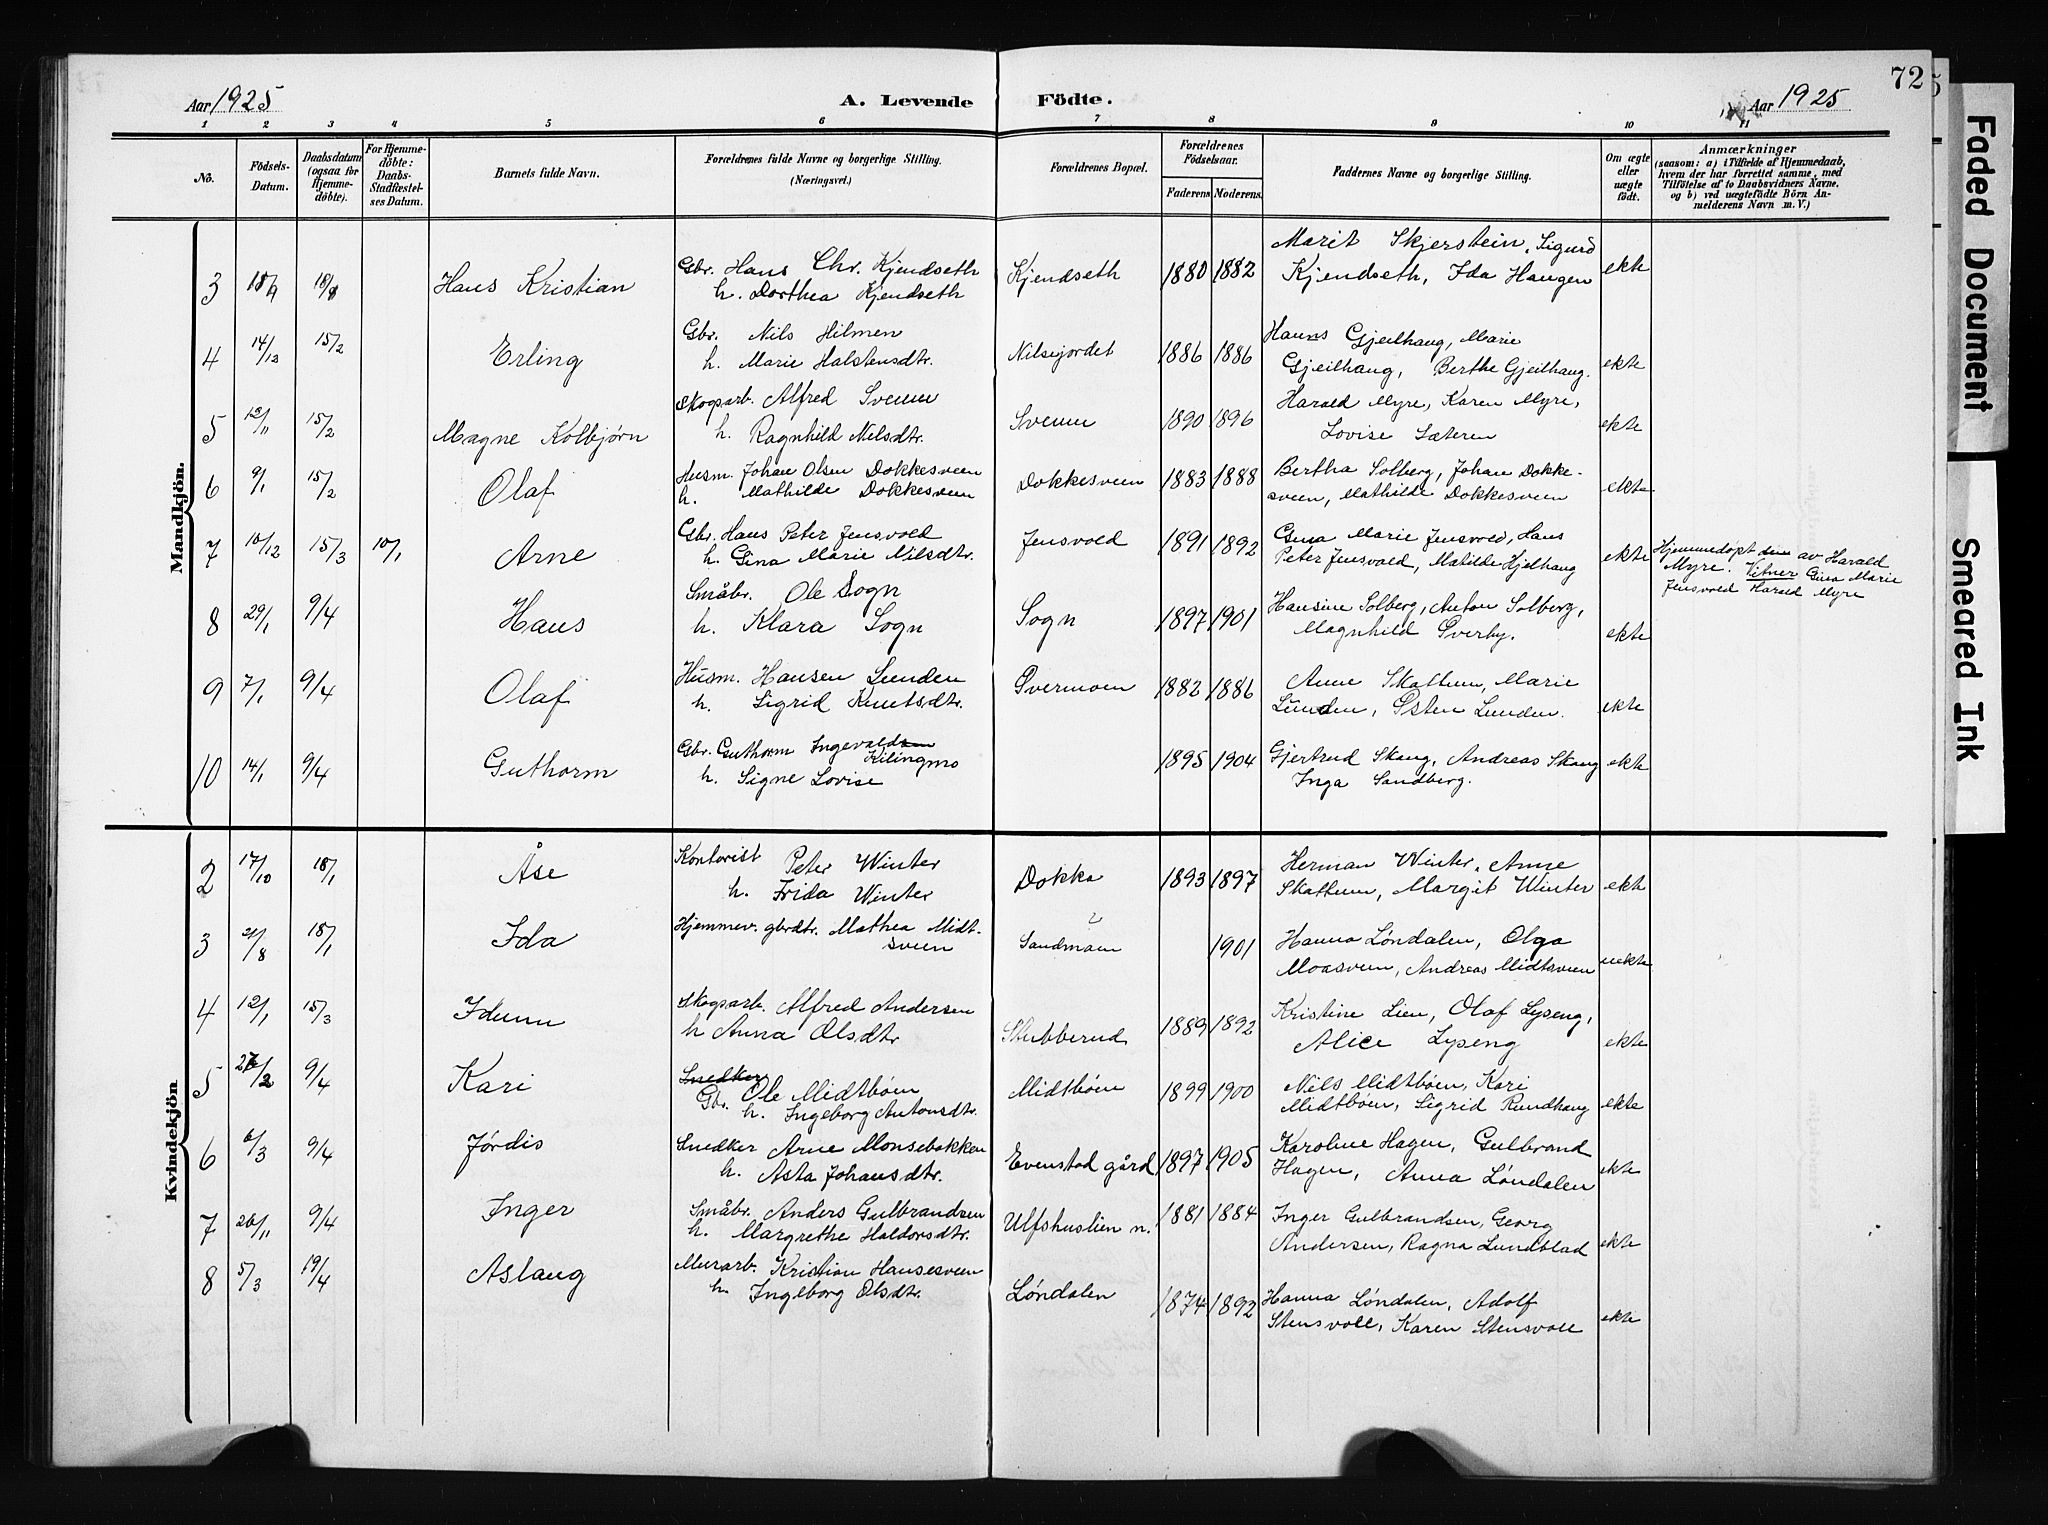 72
Aar 1925
A. Levende Födte.
Aar 1925
1 2 3 4 5 6 7 8 9 10 11
No.
Födsels-
Datum.
Daabsdatum
(ogsaa for
Hjemme-
döbte).
For Hjemme-
döbte:
Daabs-
Stadfæstel-
ses Datum.
Barnets fulde Navn.
Forældrenes fulde Navne og borgerlige Stilling.
(Næringsvei.)
Forældrenes Bopæl.
Forældrenes
Födselsaar.
Faderens Moderens.
Faddernes Navne og borgerlige Stilling.
Om ægte
eller
uægte
født.
Anmærkninger
(saasom: a) i Tilfælde af Hjemmedaab,
hvem der har forrettet samme, med
Tilföielse af to Daabsvidners Navne.
og b) ved uægtefödte Börn An-
melderens Navn m. V.)
Mandkjön.
3 18/1 Hans Kristian Gbr. Hans Chr. Kjendseth Kjendseth 1880 1882 Marit Skjerstein, Sigurd ekte
h. Dorthea Kjendseth Kjendseth, Ida Haugen
4 14/12 15/2 Erling Gbr. Nils Hilmen Nilsejordet 1886 1886 Hanns Gjeilhaug, Marie ekte
h. Marie Halstensdtr. Gjeilhaug, Berthe Gjeilhaug.
5 15/2 Magne Kolbjørn Skogsarb. Alfred Sveum Sveum 1890 1896 Harald Myre, Karen Myre, ekte
h. Ragnhild Nilsdtr. Lovise Sæteren
6 9/1 15/2 Olaf Husm. Johan Olsen Dokkesveen Dokkesveen 1883 1888 Bertha Solberg, Johan Dokke- ekte
h. Mathilde Dokkesveen sveen, Mathilde Dokkesveen
7 10/12 15/3 10/1 Arne Gbr. Hans Peter Jensvold Jensvold 1891 1892 Gina Marie Jensvold, Hans ekte Hjemmedøpt av Harald
h. Gina Marie Nilsdtr. Peter Jensvold, Matilde Hjelhaug Myre. Vitner Gina Marie
Jensvold Harald Myre
8 29/1 9/4 Hans Småbr. Ole Sogn Sogn 1897 1901 Hansine Solberg, Anton Solberg, ekte
h. Klara Sogn Magnhild Øverby.
9 7/1 9/4 Olaf Husm. Hansen Lunden Øvermoen 1882 1886 Anne Skattum, Marie ekte
h. Sigrid Knutsdtr. Lunden, Østen Lunden.
10 14/1 9/4 Guthorm Gbr. Guthorm Ingevaldsen 1895 1904 Gjertrud Skaug, Andreas Skaug ekte
Kilingmo
h. Signe Lovise Inga Sandberg.
Kvindekjön
2 17/10 18/1 Åse Kontorist Peter Winter Dokka 1893 1897 Herman Winter, Anne ekte
h. Frida Winter Skattum, Margit Winter
3 21/8 18/1 Ida Hjemmev. gbrdtr. Mathea Midt- Sandmoen 1901 Hanna Løndalen, Olga uekte
sveen Moasveen, Andreas Midtsveen
4 12/1 15/3 Idunn Skogsarb. Alfred Andersen Stubberud 1889 1892 Kristine Lien, Olaf Lyseng, ekte
h Anna Olsdtr Alice Lyseng
5 9/4 Kari Snedker
Gbr. Ole Midtbøen Midtbøen 1899 1900 Nils Midtbøen, Kari ekte
h. Ingeborg Antonsdtr. Midtbøen, Sigrid Rundhaug
6 6/3 9/4 Jørdis Snedker Arne Monsebakken Evenstad gård 1897 1905 Karoline Hagen, Gulbrand ekte
h. Asta Johansdtr. Hagen, Anna Løndalen
7 26/11 9/4 Inger Småbr. Anders Gulbrandsen Ulfshuslien n. 1881 1884 Inger Gulbrandsen, Georg ekte
h. Margrethe Haldorsdtr. Andersen, Ragna Lundblad
8 5/3 19/4 Aslaug Murarb. Kristian Hansesveen Løndalen 1874 1892 Hanna Løndalen, Adolf ekte
h. Ingeborg Olsdtr. Stensvoll, Karen Stensvoll
Faded Document
Smeared Ink